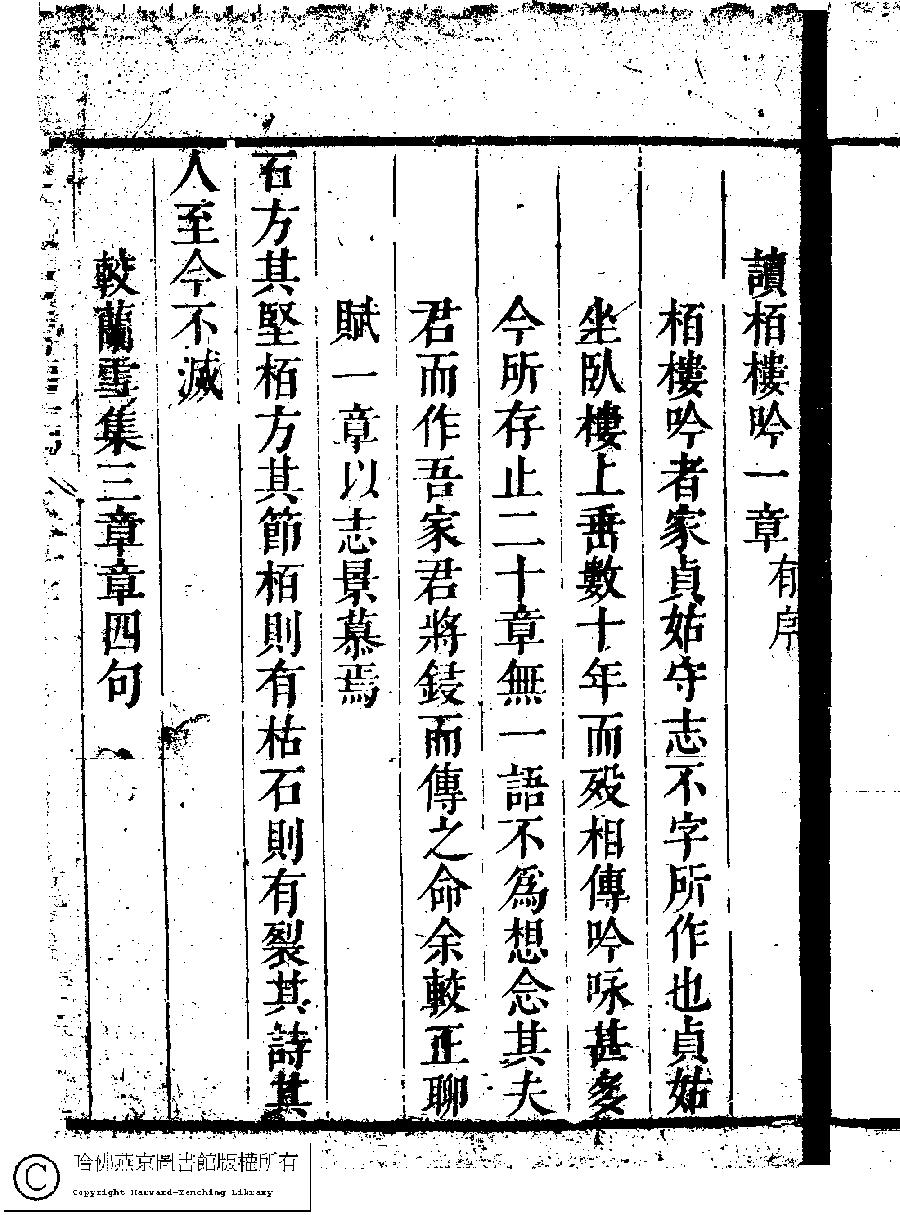 讀栢樓吟一章有序
栢樓吟者家貞姑守志不字所作也貞姑
坐臥樓上垂數十年而歿相傳吟咏甚多
今所存止二十章無一語不爲想念其夫
君而作吾家君將鋟而傳之命余較正聊
賦一章以志景慕焉
石方其堅栢方其節栢則有枯石則有裂其詩其
人至今不滅
較蘭雪集三章章四句
哈佛燕京圖書館版權所有
Copyright Harvard-Yenching Library